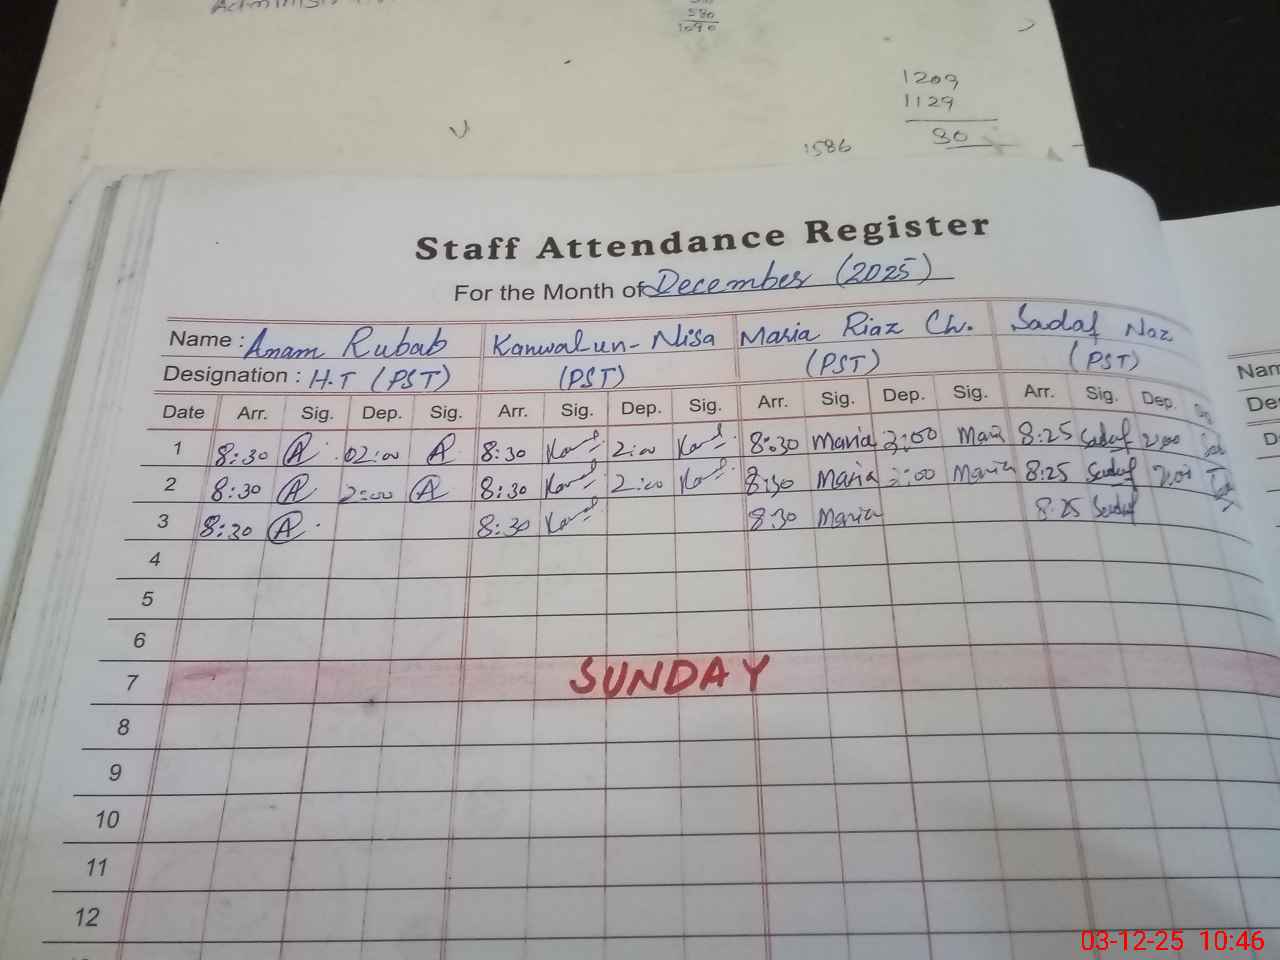 580
1090
1209
1129
80
1586
Staff Attendance Register
For the Month of December (2025)
Name : Anam Rubab Kanwal-un-Nisa Maria Riaz Ch. Sadaf Naz
Designation : H.T (PST) (PST) (PST) (PST)
Date Arr. Sig. Dep. Sig. Arr. Sig. Dep. Sig. Arr. Sig. Dep. Sig. Arr. Sig. Dep.
1 8:30 A 02:00 A 8:30 2:00 8:30 Maria 2:00 Maria 8:25 Sadaf 2:00
2 8:30 A 2:00 A 8:30 2:00 8:30 Maria 2:00 Maria 8:25 Sadaf 2:00
3 8:30 A 8:30 8:30 Maria 8:25 Sadaf
4
5
6
7 SUNDAY
8
9
10
11
12
03-12-25 10:46